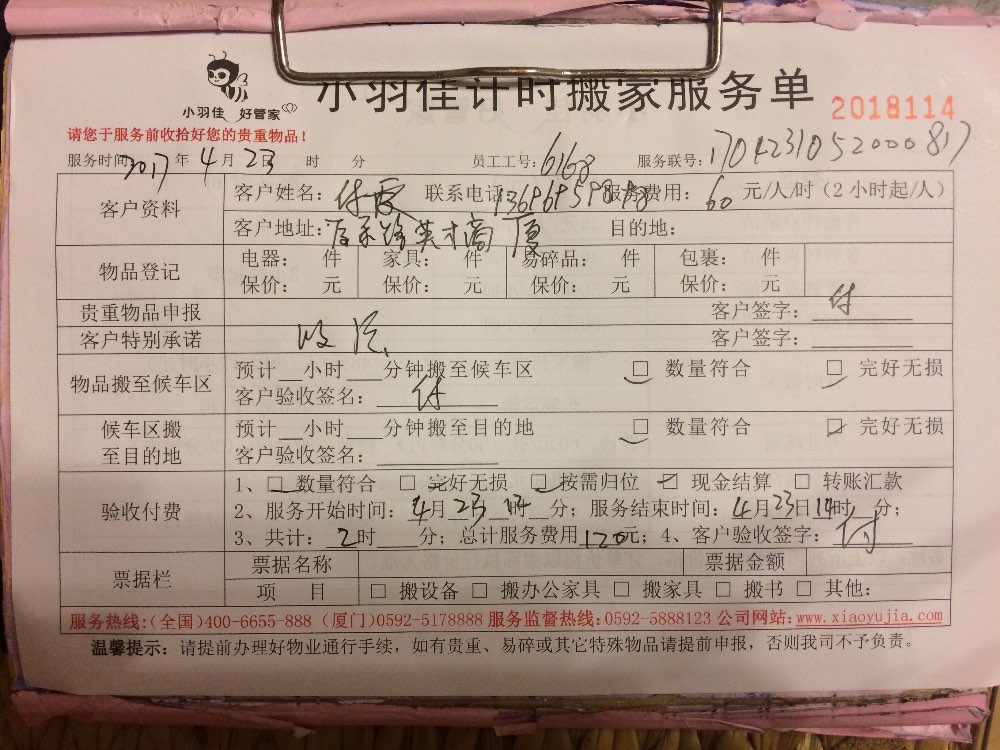 小羽佳 好管家
小羽佳计时搬家服务单
2018114
请您于服务前收拾好您的贵重物品！
服务时间 2017 年 4 月 23 日 时 分 员工工号：6168 服务联号：1704231052000817
客户资料
客户姓名：付 联系电话 服务费用：60 元/人/时（2小时起/人）
客户地址： 英才商厦 目的地：
物品登记
电器： 件 家具： 件 易碎品： 件 包裹： 件
保价： 元 保价： 元 保价： 元 保价： 元
贵重物品申报 客户签字：付
客户特别承诺 客户签字：
物品搬至候车区
预计__小时___分钟搬至候车区 □ 数量符合 □ 完好无损
客户验收签名：付
候车区搬
至目的地
预计__小时___分钟搬至目的地 □ 数量符合 □ 完好无损
客户验收签名：
验收付费
1、□ 数量符合 □ 完好无损 □ 按需归位 □ 现金结算 □ 转账汇款
2、服务开始时间：4月23 时 分；服务结束时间：4月23日 时 分；
3、共计：2时___分；总计服务费用 120元；4、客户验收签字：付
票据栏
票据名称 票据金额
项 目 □ 搬设备 □ 搬办公家具 □ 搬家具 □ 搬书 □ 其他：
服务热线：（全国）400-6655-888（厦门）0592-5178888 服务监督热线：0592-5888123 公司网站：www.xiaoyujia.com
温馨提示：请提前办理好物业通行手续，如有贵重、易碎或其它特殊物品请提前申报，否则我司不予负责。